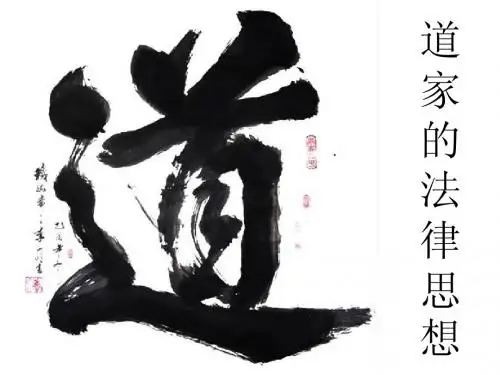 道家的法律思想
道